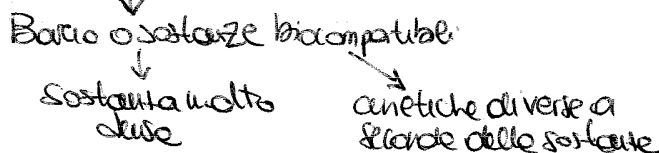 Bario o sostanze biocompatibili
sostanza molto
densa
cinetiche diverse a
seconda delle sostanze